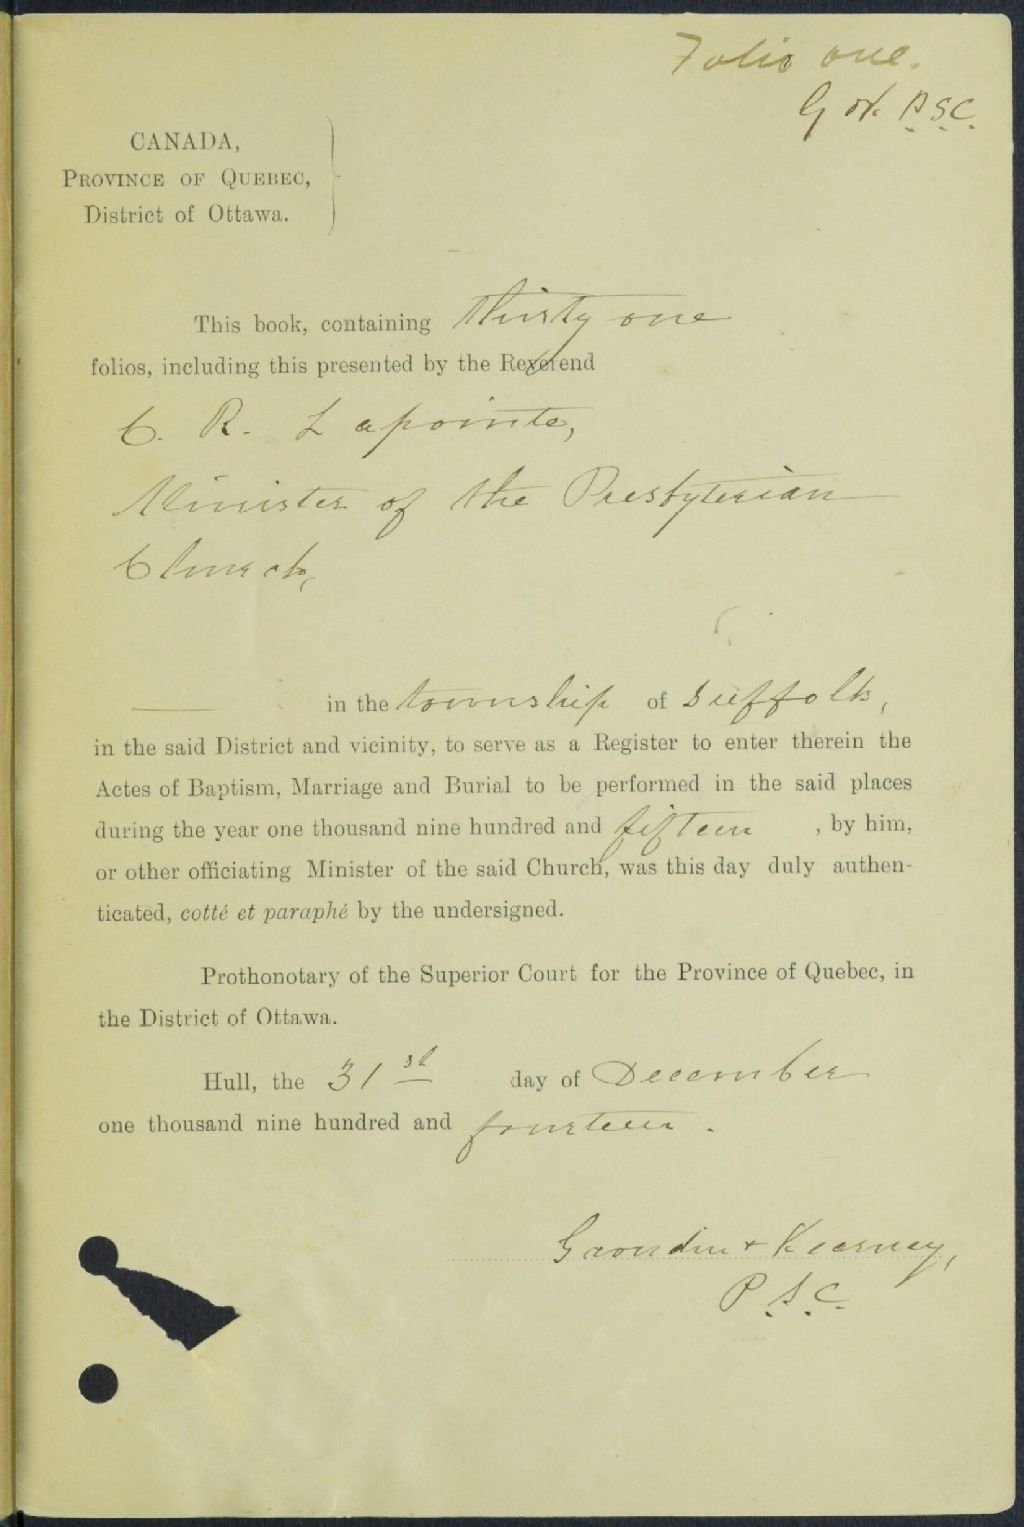 Folio one.
G & K. P.S.C.
CANADA,
PROVINCE OF QUEBEC,
District of Ottawa.
This book, containing thirty one
folios, including this presented by the Reverend
C. R. Lapointe,
Minister of the Presbyterian
Church,
in the township of Suffolk,
in the said District and vicinity, to serve as a Register to enter therein the
Actes of Baptism, Marriage and Burial to be performed in the said places
during the year one thousand nine hundred and fifteen , by him,
or other officiating Minister of the said Church, was this day duly authen-
ticated, cotté et paraphé by the undersigned.
Prothonotary of the Superior Court for the Province of Quebec, in
the District of Ottawa.
Hull, the 31st day of December
one thousand nine hundred and fourteen.
& Kearney,
P.S.C.